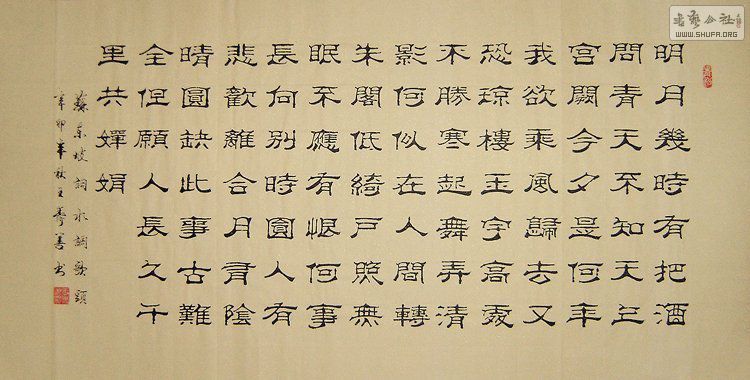 明月幾時有把酒
問青天不知天上
宮闕今夕是何年
我欲乘風歸去又
恐琼樓玉宇高處
不勝寒起舞弄清
影何似在人間轉
朱閣低綺戶照無
眠不應有恨何事
長向別時圓人有
悲歡離合月有陰
晴圓缺此事古難
全但願人長久千
里共嬋娟
蘇東坡詞水調歌頭
辛卯年秋王善书
WWW.SHUFA.ORG